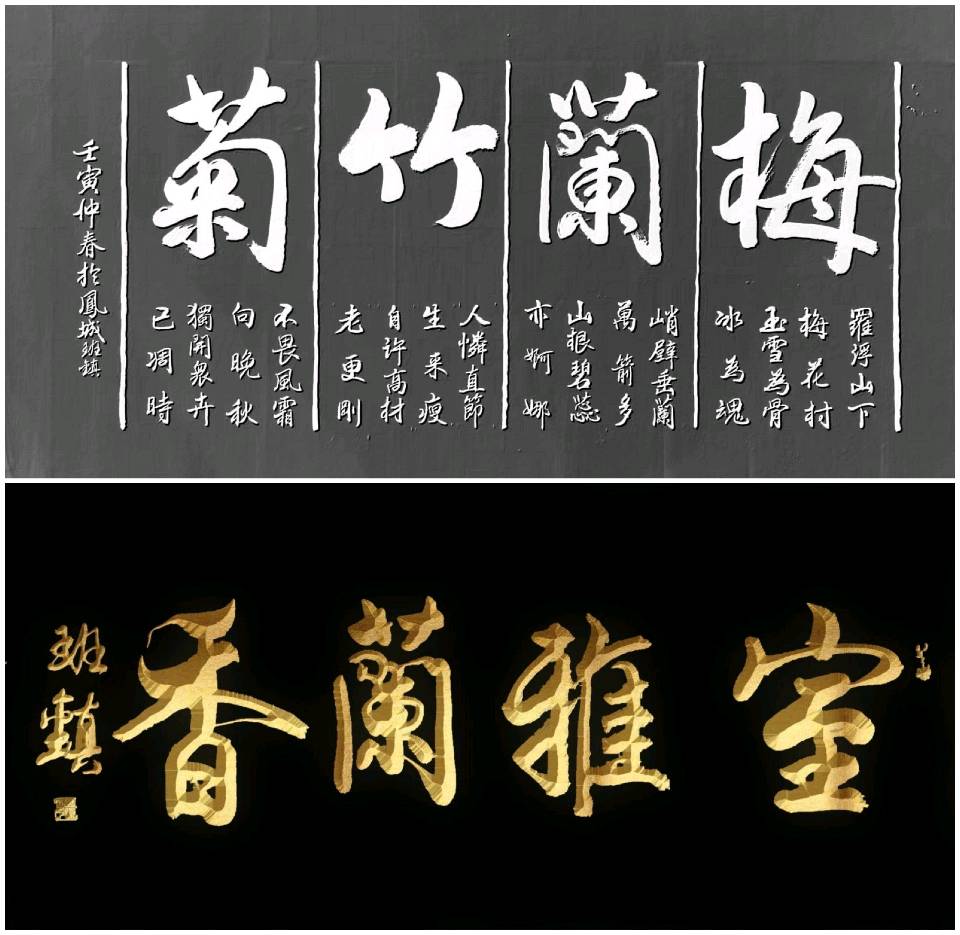 梅
羅浮山下
梅花村
玉雪為骨
冰為魂
蘭
峭壁垂蘭
萬箭多
山根碧蕊
亦婀娜
竹
人憐直節
生來瘦
自許高材
老更剛
菊
不畏風霜
向晚秋
獨開衆卉
已凋時
壬寅仲春於鳳城班鎮
室雅蘭香
班鎮